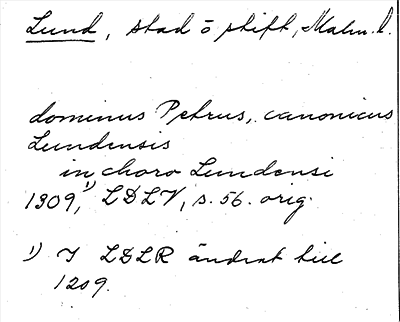 Lund, stad o stift, Malm. l.
dominus Petrus, canonicus
Lundensis
in choro Lundensi
1309,¹⁾ LDLV, s. 56. orig.
¹⁾ I LDLR ändrat till
1209.